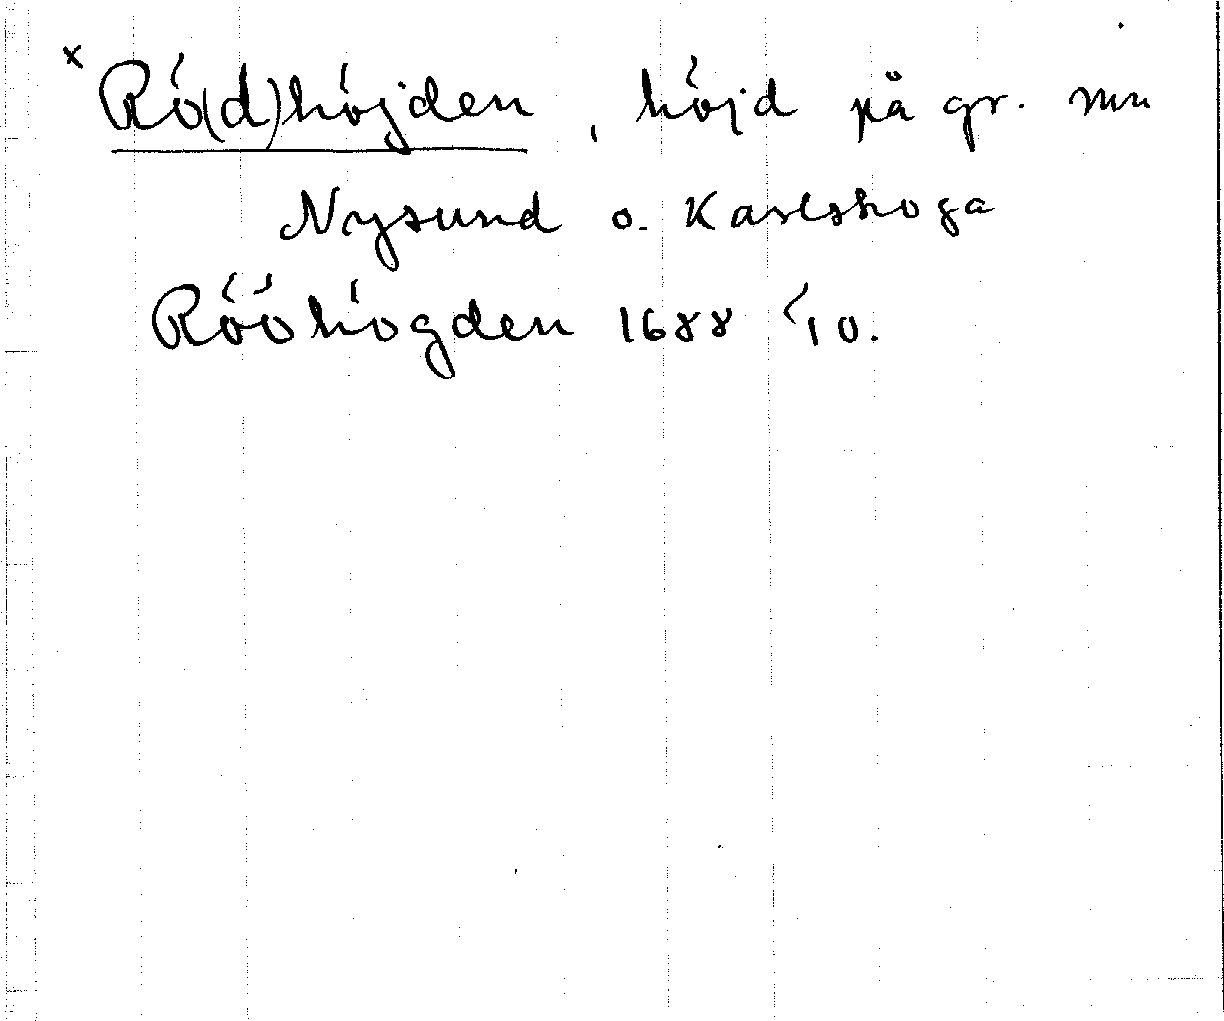 × Rö(d)höjden, höjd på gr. mn
Nysund o. Karlskoga
Rööhögden 1688 /10.